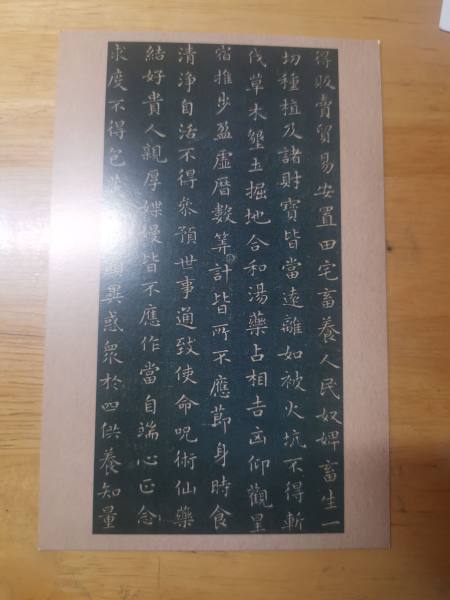 得販賣貿易安置田宅畜養人民奴婢畜生一
切種植及諸財寶皆當遠離如被火坑不得斬
伐草木墾土掘地合和湯藥占相吉凶仰觀星
宿推步盈虛曆數筭計皆所不應節身時食
清淨自活不得參預世事通致使命呪術仙藥
結好貴人親厚媟慢皆不應作當自端心正念
求度不得包異惑眾於四供養知量